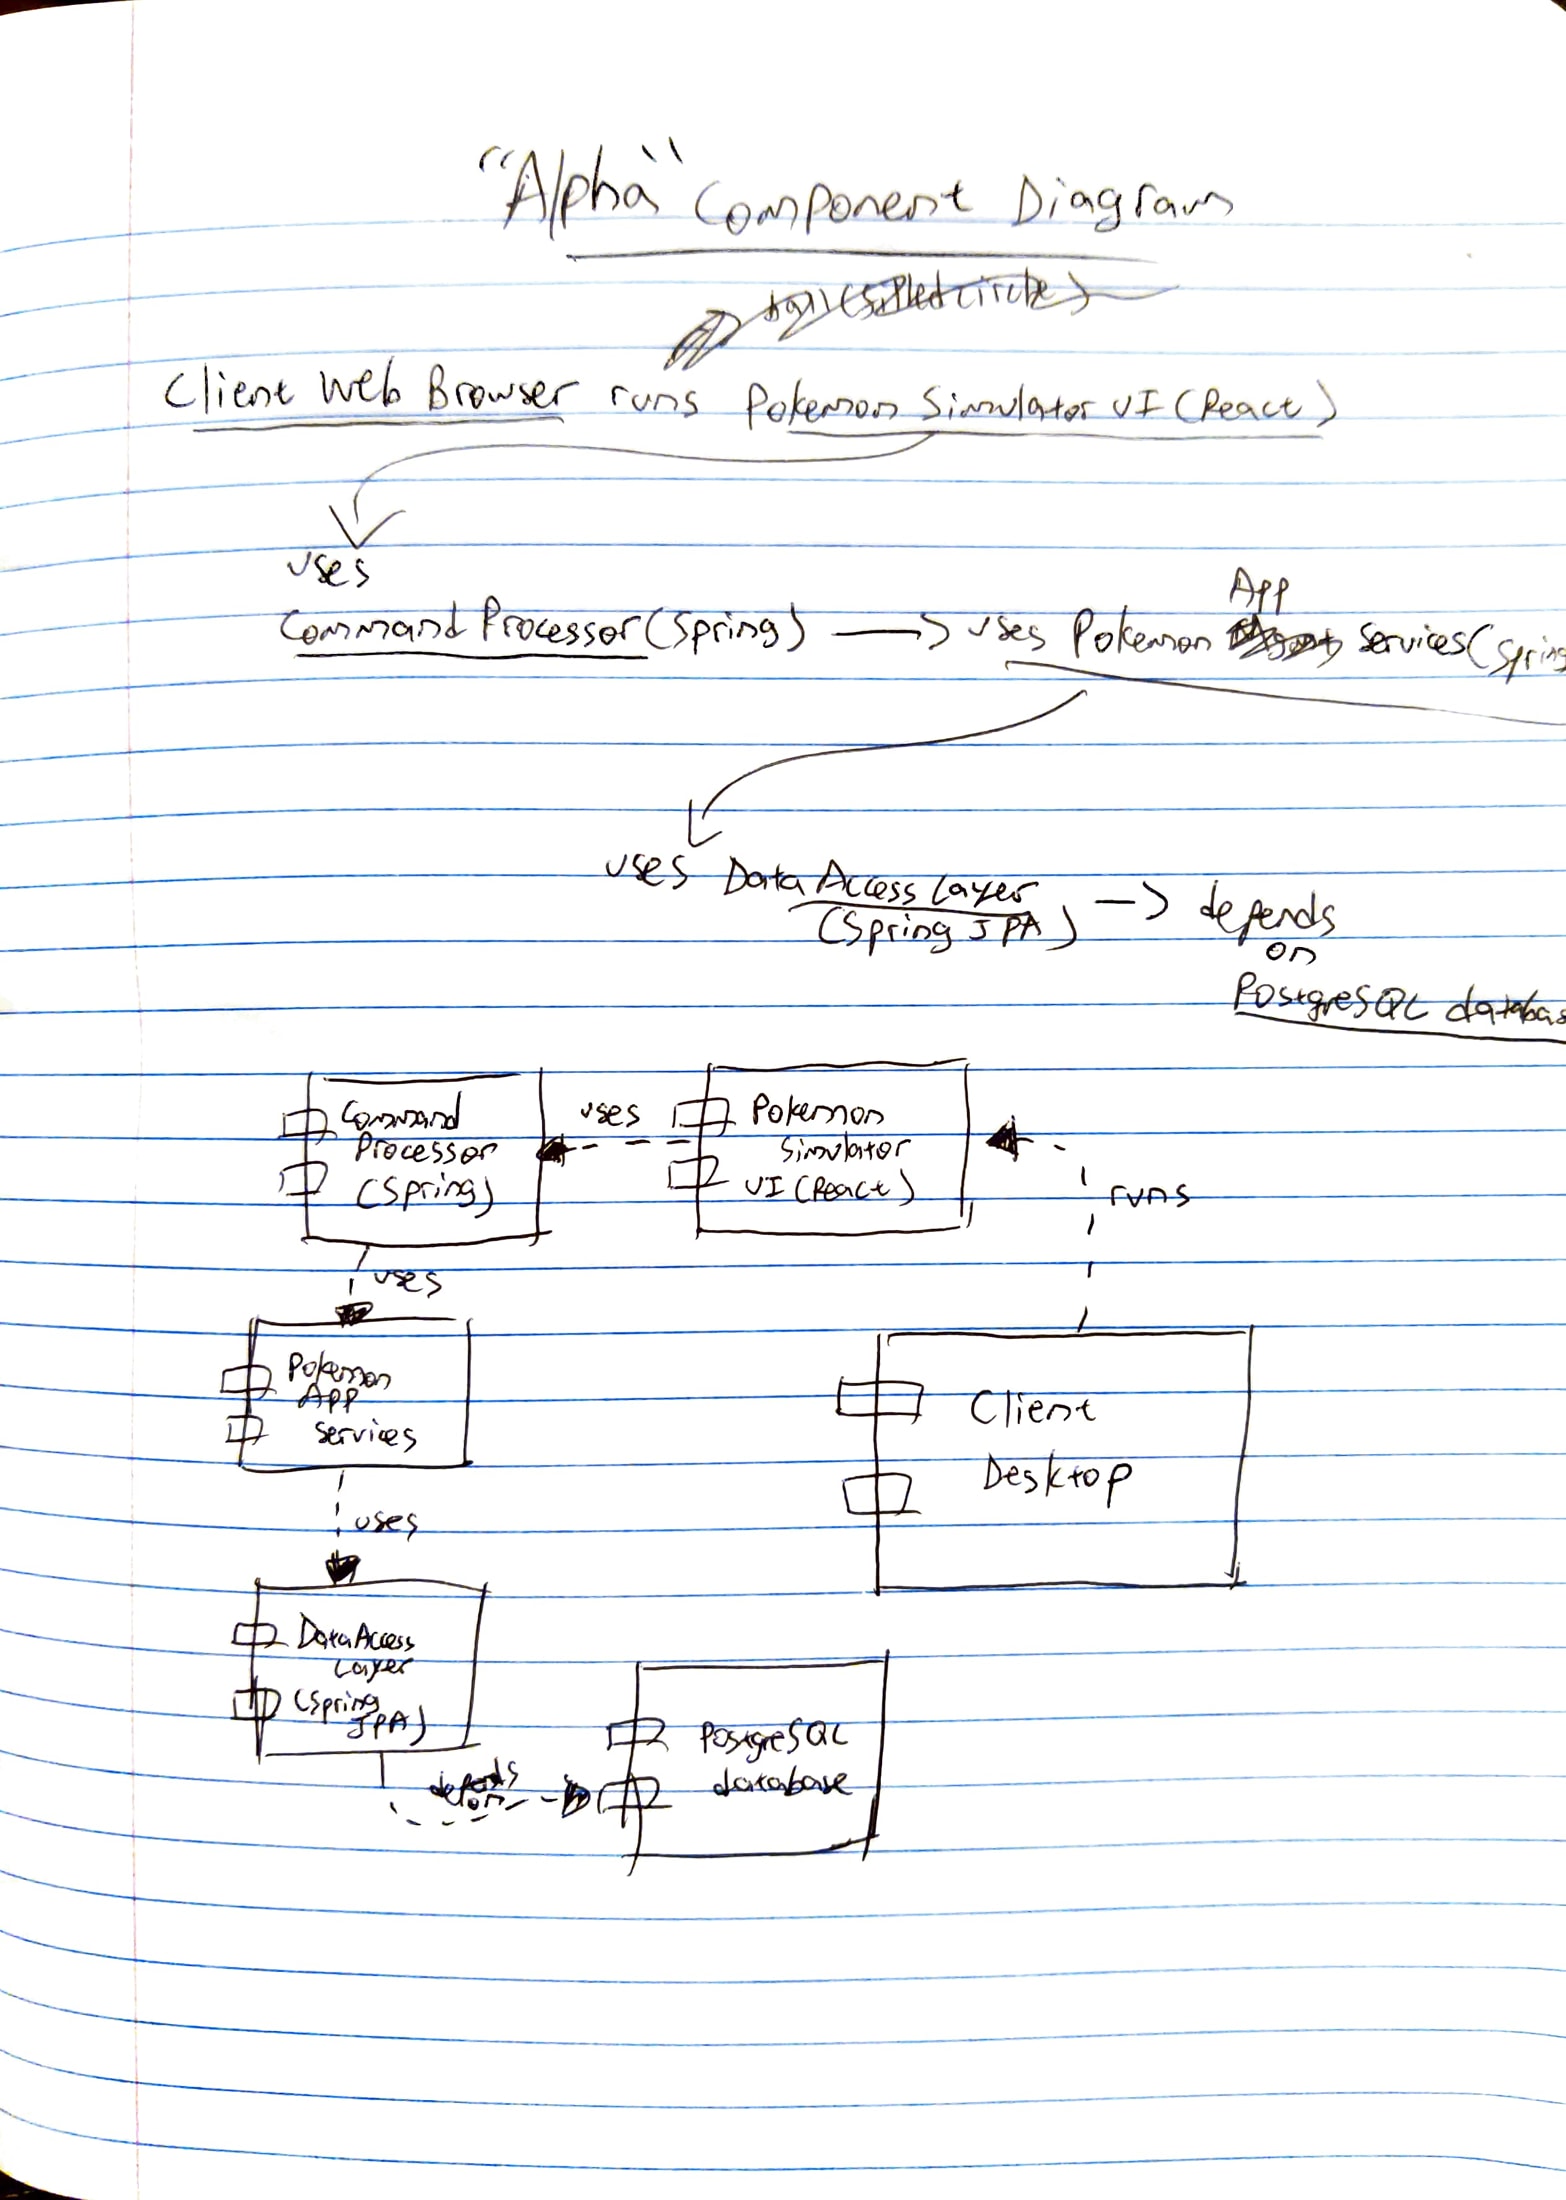 "Alpha" Component Diagram
Client Web Browser runs Pokemon Simulator UI (React)
uses
App
Command Processor (Spring) → uses Pokemon Services (Spring
uses Data Access Layer → depends
(Spring JPA)
on
PostgreSQL databas
Command
Processor
(Spring)
uses
Pokemon
Simulator
UI (React)
runs
uses
Pokemon
App
Services
Client
Desktop
uses
Data Access
Layer
(Spring
JPA)
depends
on
PostgreSQL
database